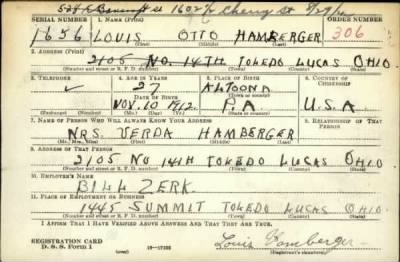 1607½ Cherry St
SERIAL NUMBER 1. NAME (Print) ORDER NUMBER
1656 LOUIS OTTO HAMBERGER 306
(First) (Middle) (Last)
2. ADDRESS (Print)
2105 NO. 14TH TOLEDO LUCAS OHIO
(Number and street or R. F. D. number) (Town) (County) (State)
3. TELEPHONE 4. AGE IN YEARS 5. PLACE OF BIRTH 6. COUNTRY OF CITIZENSHIP
✓ 27 ALTOONA
DATE OF BIRTH (Town or county)
NOV. 10 1912 P.A. U.S.A.
(Mo.) (Day) (Yr.) (State or country)
7. NAME OF PERSON WHO WILL ALWAYS KNOW YOUR ADDRESS 8. RELATIONSHIP OF THAT PERSON
MRS. VERDA HAMBERGER
(Mr., Mrs., Miss) (First) (Middle) (Last)
9. ADDRESS OF THAT PERSON
2105 NO 14TH TOLEDO LUCAS OHIO
(Number and street or R. F. D. number) (Town) (County) (State)
10. EMPLOYER'S NAME
BILL ZERK.
11. PLACE OF EMPLOYMENT OR BUSINESS
1445 SUMMIT TOLEDO LUCAS OHIO.
(Number and street or R. F. D. number) (Town) (County) (State)
I AFFIRM THAT I HAVE VERIFIED ABOVE ANSWERS AND THAT THEY ARE TRUE.
REGISTRATION CARD
D. S. S. Form 1 16—17105 Louis Hamberger
(Registrant's signature)